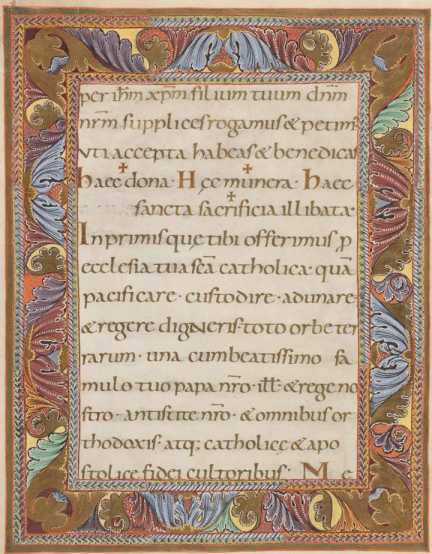 per ihm̄ xpm̄ filium tuum dnm̄
nrm̄ supplices rogamus & petim᷒
vti accepta habeas & benedicas
haec dona· Hęc munera· haec
sancta sacrificia illibata·
Inprimis que tibi offerimus p̱
ecclesia tua sc̄a catholica· quā
pacificare· custodire· adunare
& regere digneris· toto orbe ter
rarum· una cum beatissimo fa
mulo tuo papa nr̄o· ill̄· & rege no
stro· antistite nr̄o· & omnibus or
thodoxis· atq; catholicę & apo
stolicę fidei cultoribus· Me